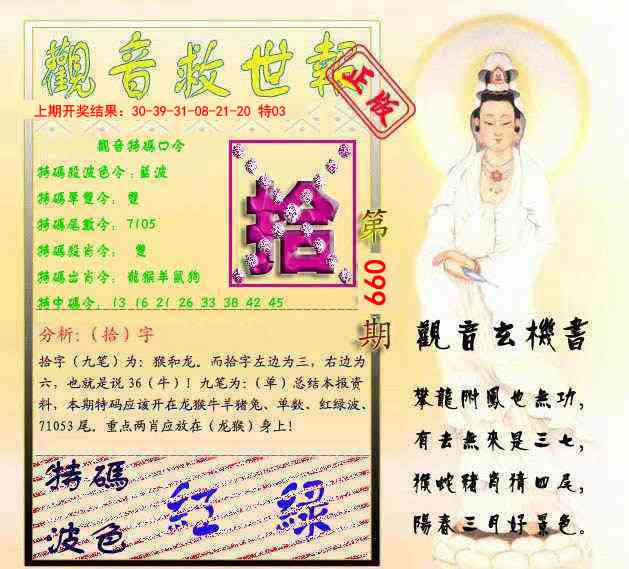 觀音救世報
正版
上期开奖结果：30-39-31-08-21-20 特03
觀音特碼口令
特碼段波色令：藍波
特碼單雙令： 雙
特碼尾數令： 7105
特碼段肖令： 雙
特碼出肖令： 龍猴羊鼠狗
特中碼令： 13 16 21 26 33 38 42 45
拾
第099期
分析：（拾）字
拾字（九笔）为：猴和龙。而拾字左边为三，右边为
六，也就是说36（牛）！九笔为：（单）总结本报资
料，本期特码应该开在龙猴牛羊猪兔、单数、红绿波、
71053尾。重点两肖应放在（龙猴）身上！
特碼
波色
紅 綠
觀音玄機書
攀龍附鳳也無功，
有去無來是三七，
猴蛇豬肖猜四尾，
陽春三月好景色。